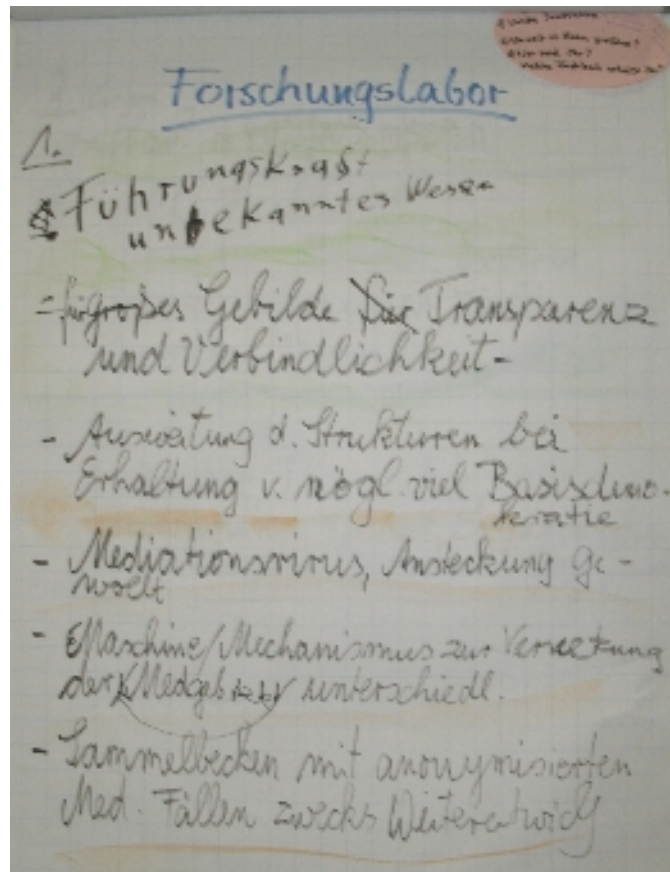 Forschungslabor
1.
Führungskraft
unbekanntes Wesen
- für großes Gebilde für Transparenz
und Verbindlichkeit -
- Ausweitung d. Strukturen bei
Erhaltung v. mögl. viel Basisdemo-
kratie
- Mediationsvirus, Ansteckung ge-
wollt
- Maschine/Mechanismus zur Vernetzung
der unterschiedl.
- Sammelbecken mit anonymisierten
Med. Fällen zwecks